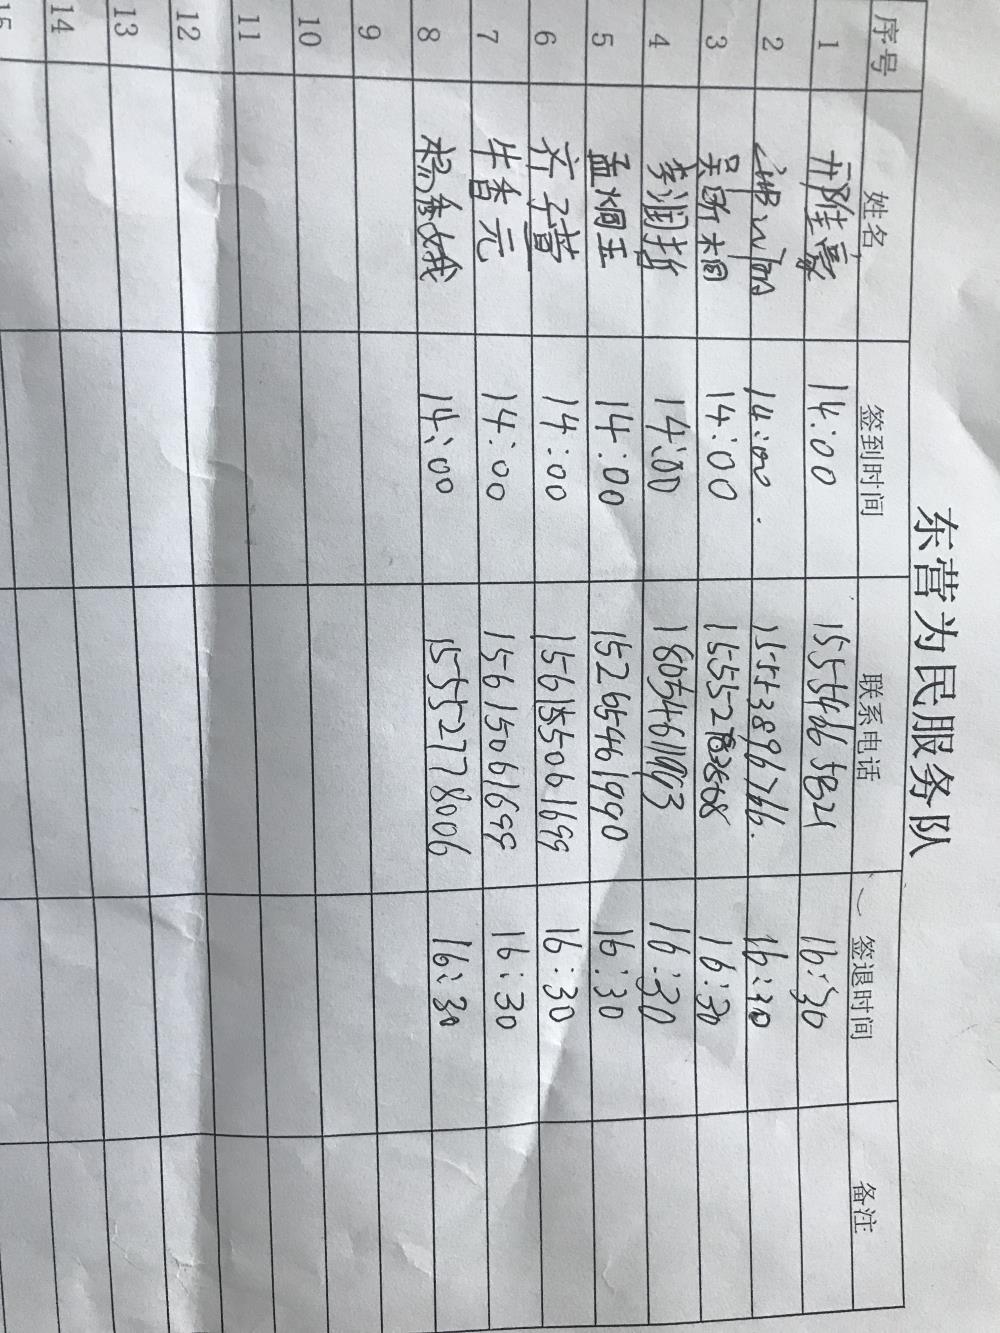 东营为民服务队
序号 姓名 签到时间 联系电话 签退时间 备注
1 14:00 16:30
2 14:00 15553896766. 16:30
3 14:00 16:30
4 李润哲 14:00 16:30
5 孟炯玉 14:00 15265461990 16:30
6 齐子萱 14:00 16:30
7 牛香元 14:00 15615061699 16:30
8 杨秀娥 14:00 15552778006 16:30
9
10
11
12
13
14
15